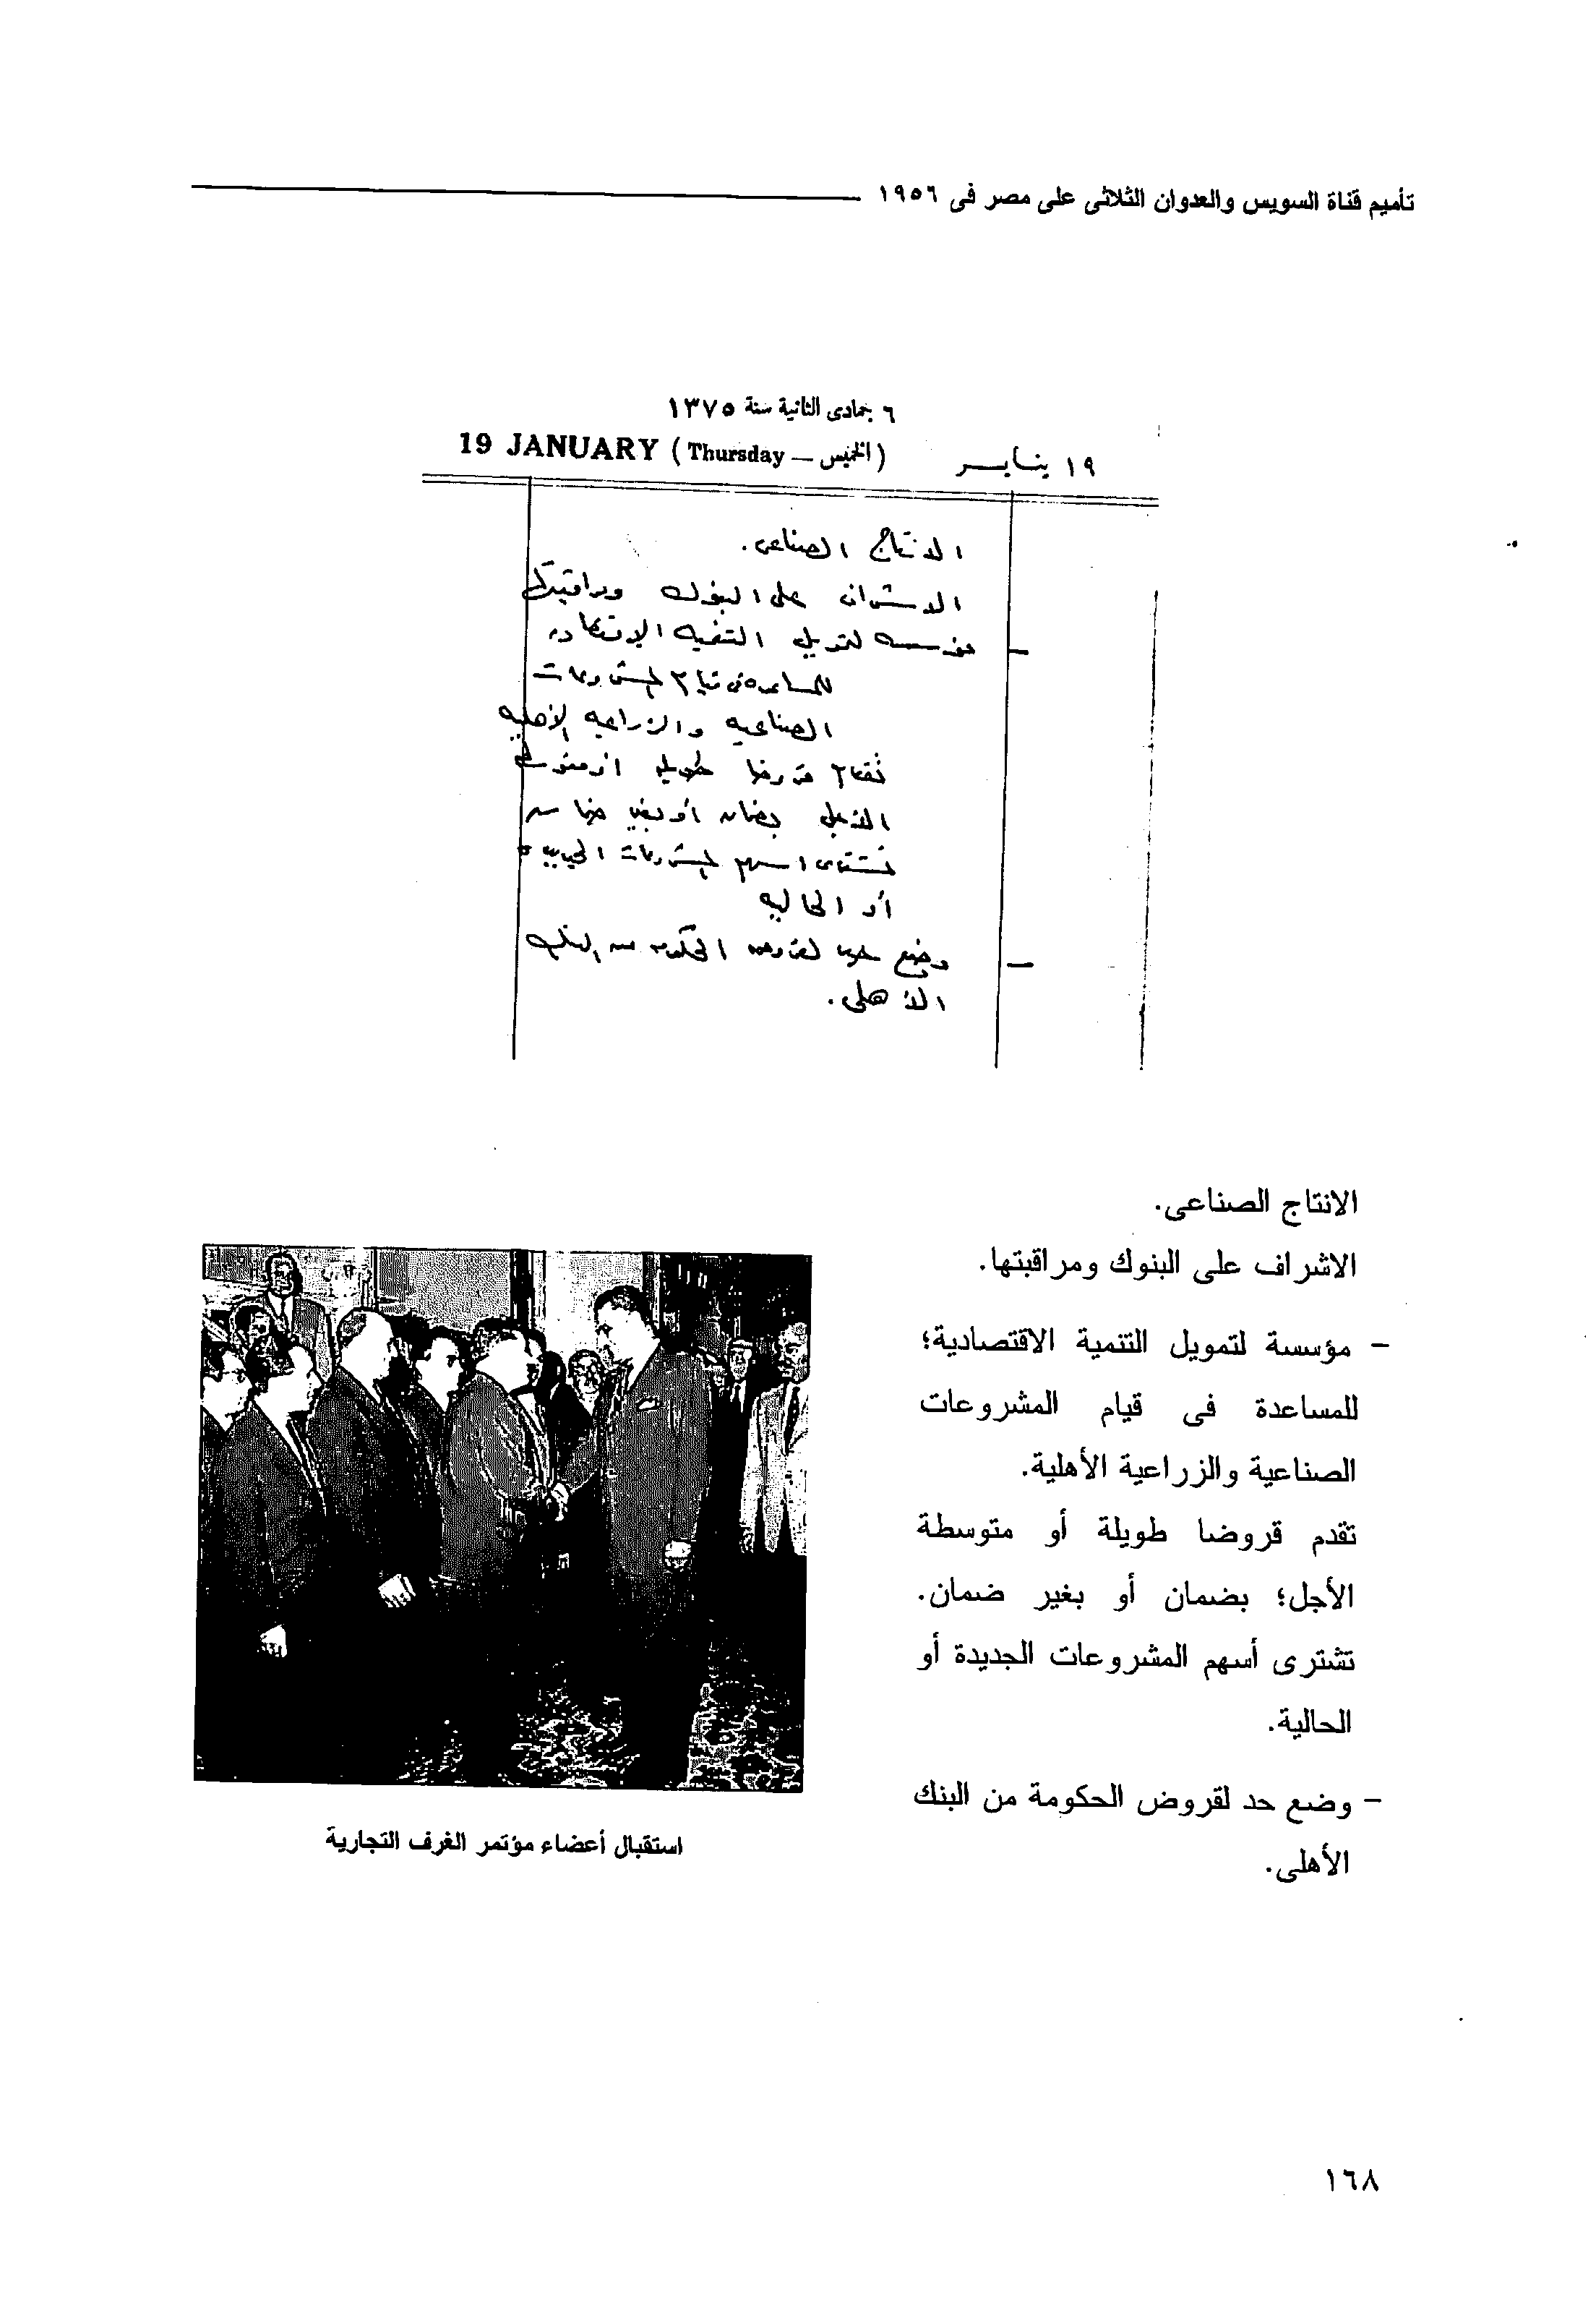 تأميم قناة السويس والعدوان الثلاثى على مصر فى ١٩٥٦
٦ جمادى الثانية سنة ١٣٧٥
١٩ ينايـر (الخميس — Thursday) 19 JANUARY
الانتاج الصناعى.
الاشراف على البنوك ومراقبتها
— مؤسسة لتمويل التنمية الاقتصادية
للمساعدة فى قيام المشروعات
الصناعية والزراعية الأهلية
تقدم قروضا طويلة أو متوسطة
الأجل بضمان أو بغير ضمان
تشترى اسهم المشروعات الجديدة
أو الحالية
— وضع حد لقروض الحكومة من البنك
الأهلى.
الانتاج الصناعى.
الاشراف على البنوك ومراقبتها.
- مؤسسة لتمويل التنمية الاقتصادية؛
للمساعدة فى قيام المشروعات
الصناعية والزراعية الأهلية.
تقدم قروضا طويلة أو متوسطة
الأجل؛ بضمان أو بغير ضمان.
تشترى أسهم المشروعات الجديدة أو
الحالية.
- وضع حد لقروض الحكومة من البنك
الأهلى.
استقبال أعضاء مؤتمر الغرف التجارية
١٦٨